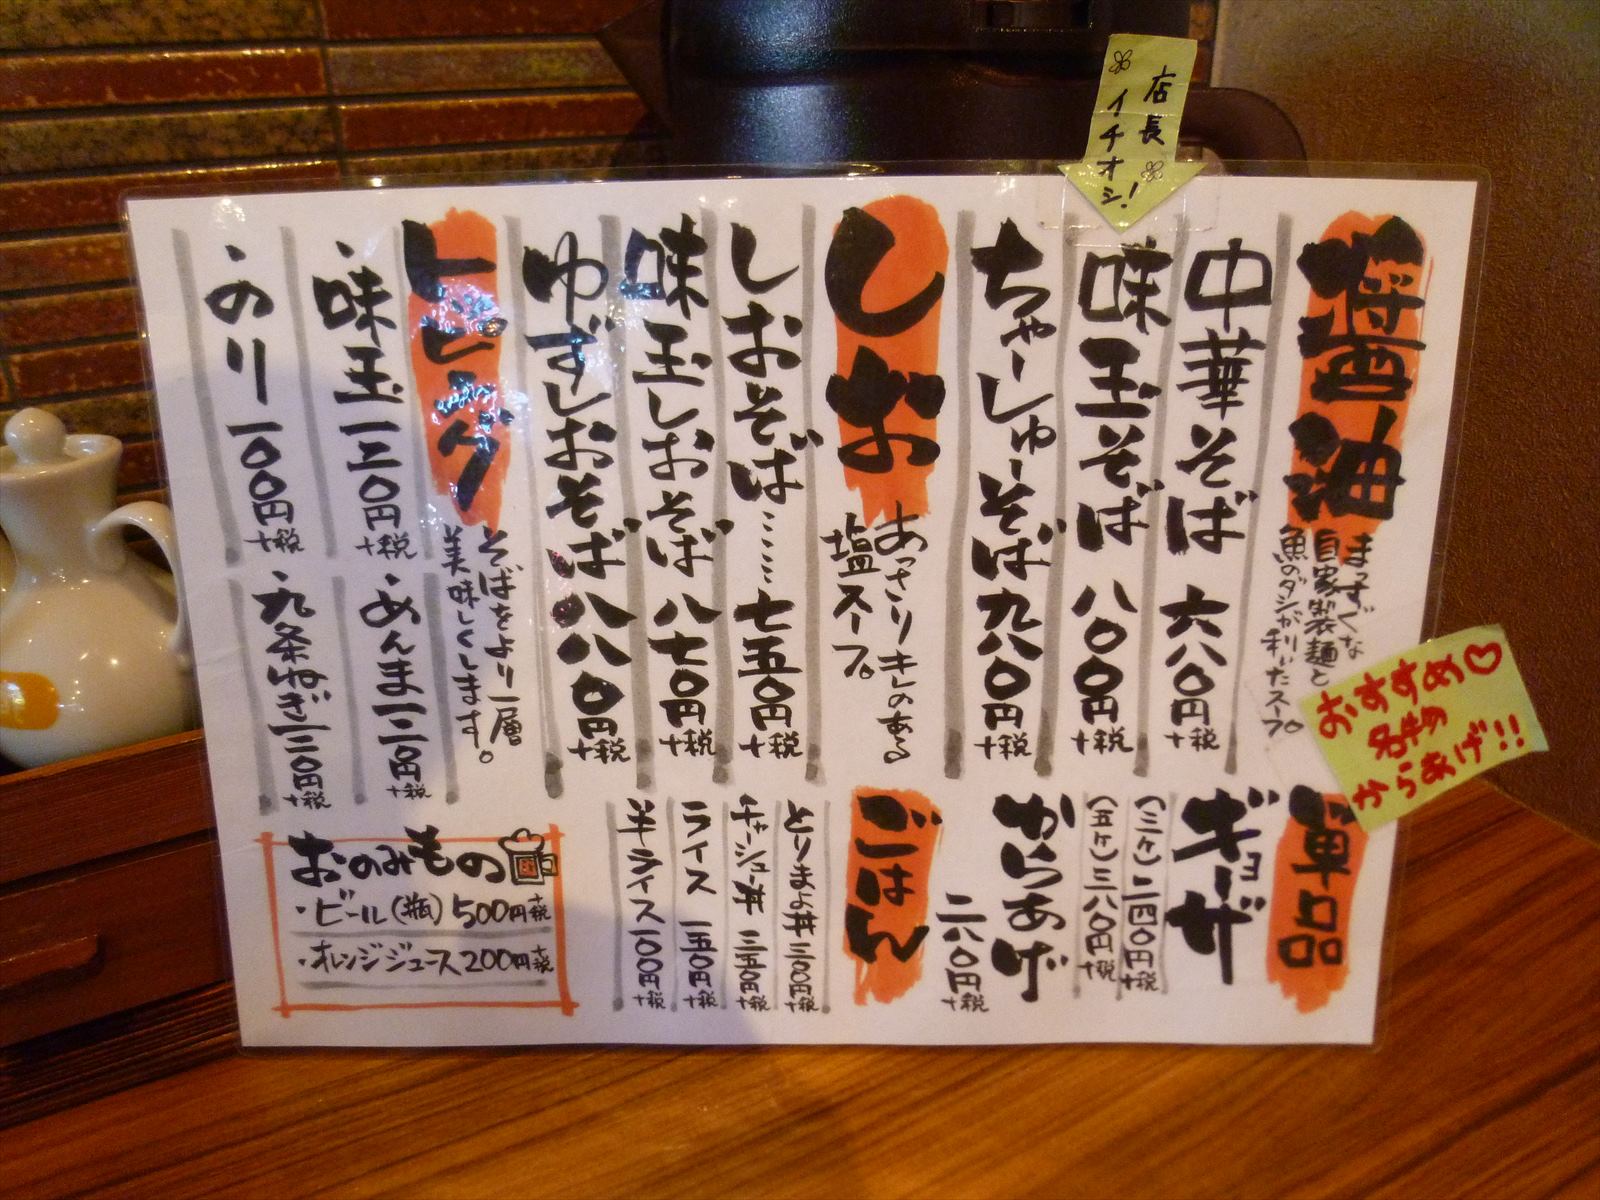 店長
イチオシ!
醤油
まっすぐな
自家製麺と
魚のダシが利いたスープ
中華そば 六八〇円+税
味玉そば 八〇〇円+税
ちゃーしゅーそば 九八〇円+税
しお
あっさりキレのある
塩スープ。
しおそば……七五〇円+税
味玉しおそば 八七〇円+税
ゆずしおそば 八八〇円+税
トッピング
そばをより一層
美味しくします。
・味玉 一二〇円+税
・めんま 一二〇円+税
・のり 一〇〇円+税
・九条ねぎ 一二〇円+税
おすすめ♡
名物
からあげ!!
単品
ギョーザ
(三ケ)二四〇円+税
(五ケ)三八〇円+税
からあげ
二六〇円+税
ごはん
とりまよ丼 三〇〇円+税
チャーシュー丼 三五〇円+税
ライス 一五〇円+税
半ライス 一〇〇円+税
おのみもの
・ビール(瓶) 500円+税
・オレンジジュース 200円+税